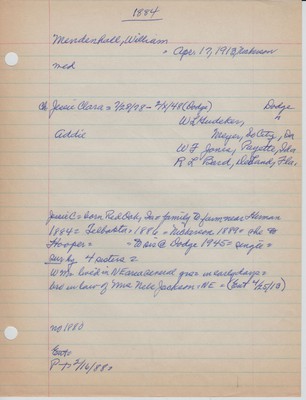 1884
Mendenhall, William
- Apr. 17, 1913, Nickerson
med
ch Jessie Clara = 7/28/78 - 2/5/48 (Dodge) Dodge
W L Hudeken,
Addie Meyer, Do City, Ia
W F Jones, Payette, Ida
R L Bard, DeLand, Fla.
Jessie C = born Red Oak, Ia = family to farm near Herman
1884 = Telbasta = 1886 = Nickerson 1889 = she to
Hooper = = To sis @ Dodge 1945 = single =
Sur by 4 sisters =
W M = lived in NE area several yrs = in early days =
bro in law of Mrs Nels Jackson = NE - (Ent 4/25/13)
no 1880
Ent =
P - + 2/16/88 =